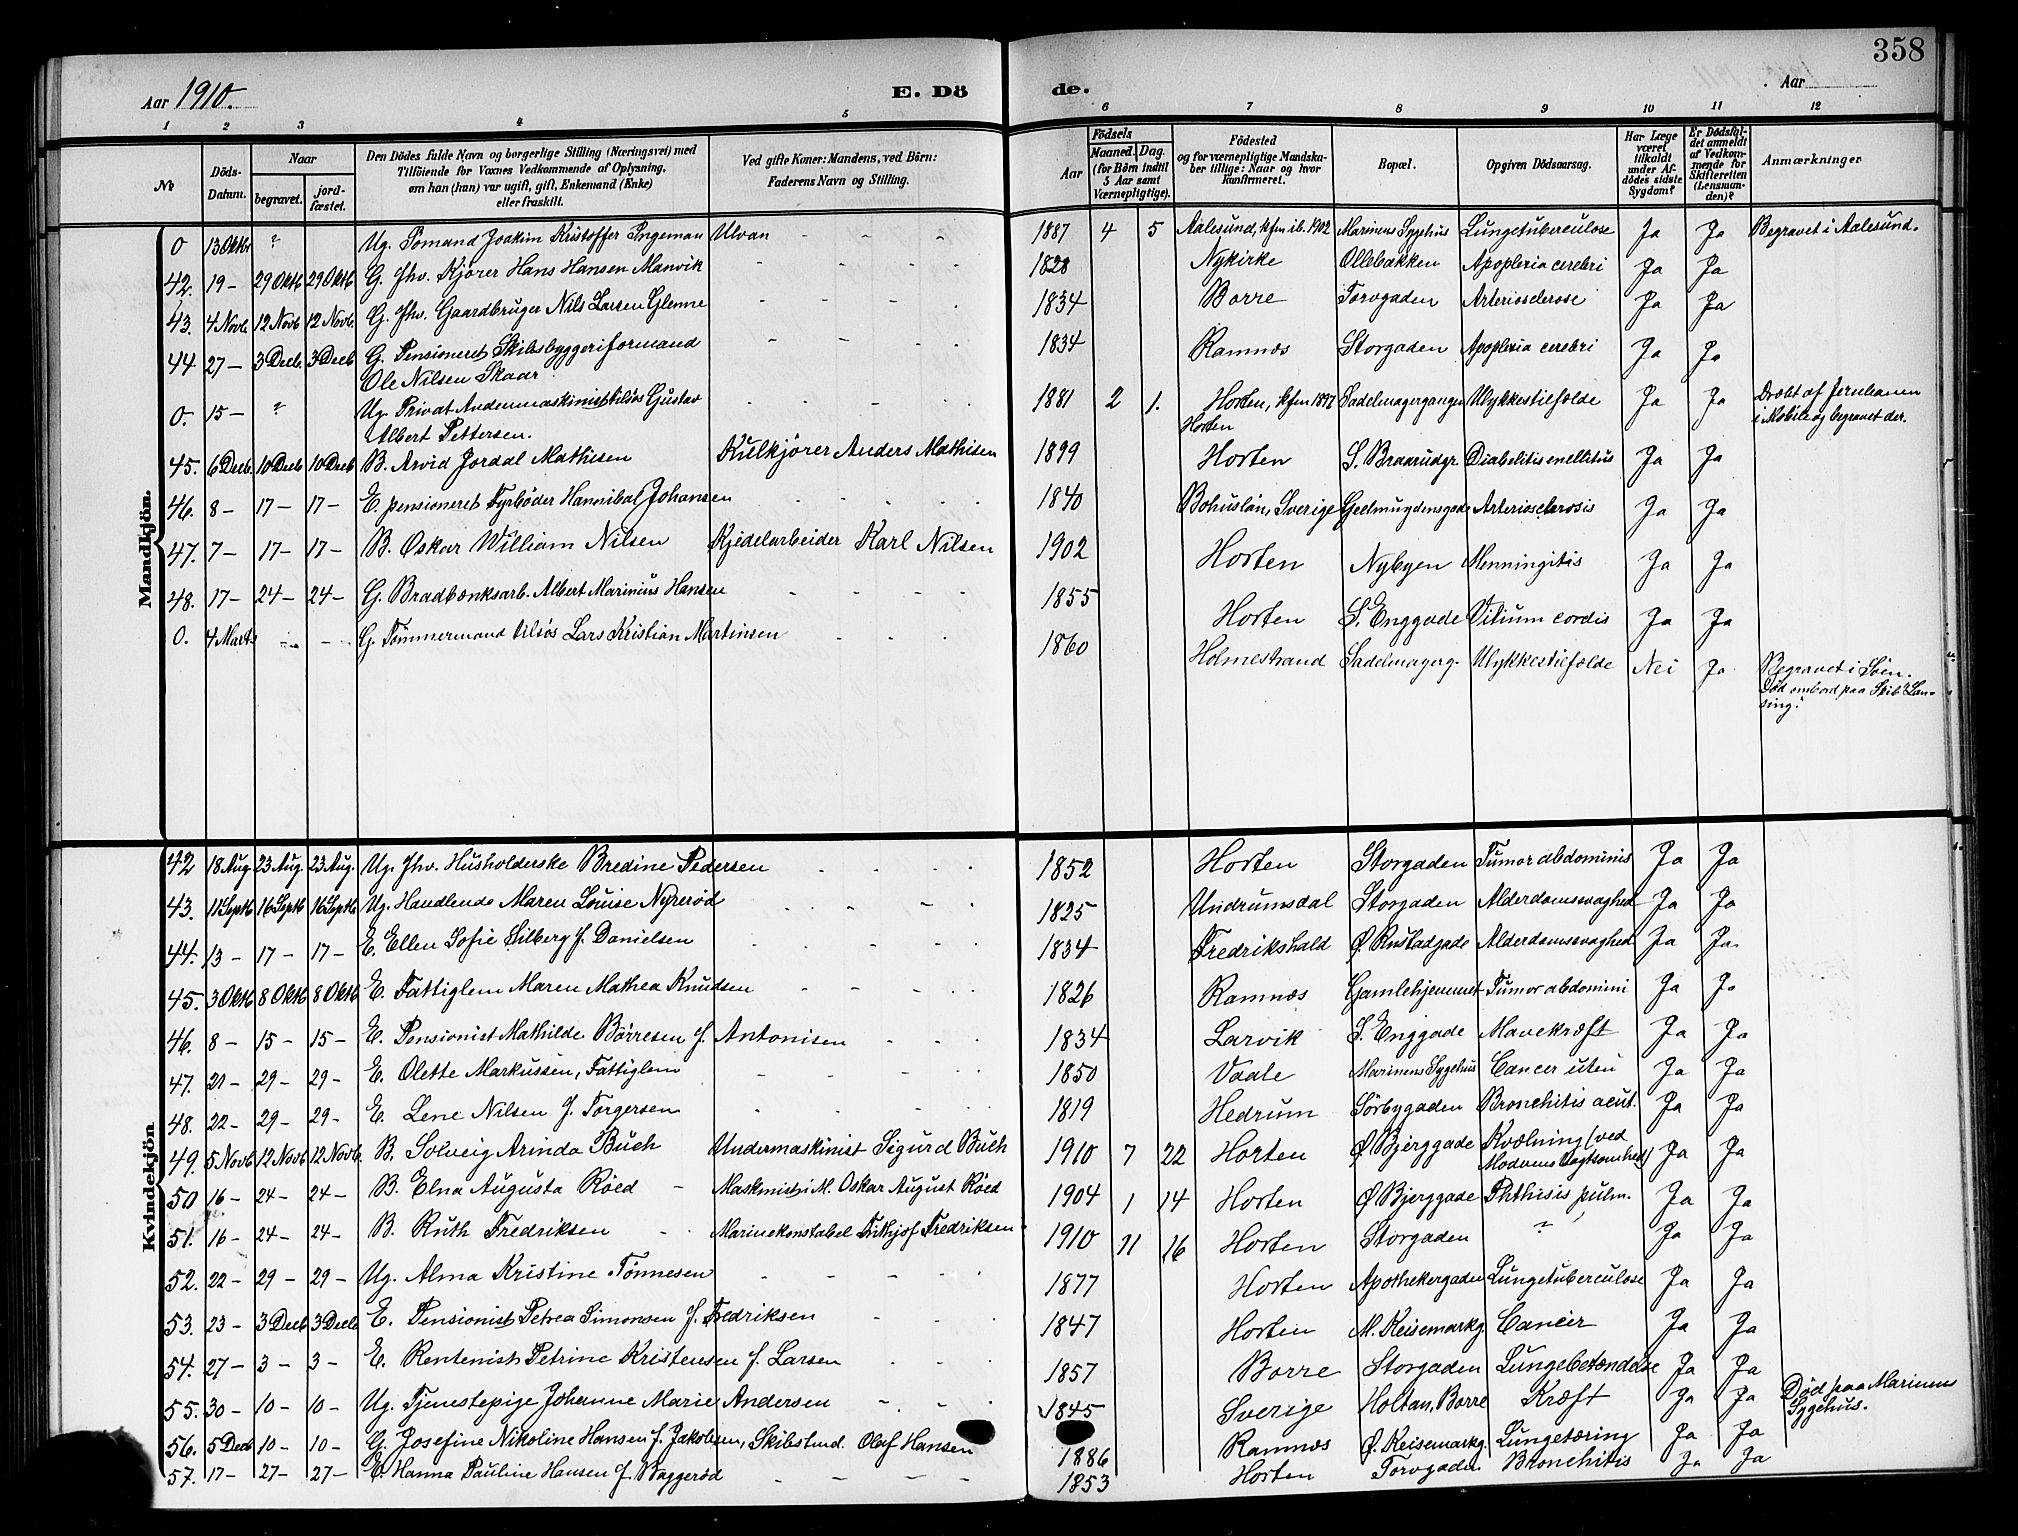 358
Aar 1910.
E. Dö
de.
Aar
1 2 3 4 5 6 7 8 9 10 11 12
No
Döds-Datum.
Naar
begravet.
jord-fæstet.
Den Dödes fulde Navn og borgerlige Stilling (Næringsvei) med
Tilföiende for Voxnes Vedkommende af Oplysning,
om han (hun) var ugift, gift, Enkemand (Enke)
eller fraskilt.
Ved gifte Koner: Mandens, ved Börn:
Faderens Navn og Stilling.
Födsels
Aar
Maaned. Dag.
(for Börn indtil 5 Aar samt Værnepligtige).
Födested
og for værnepligtige Mandska-
ber tillige: Naar og hvor
konfirmeret.
Bopæl.
Opgiven Dödsaarsag.
Har Læge været tilkaldt under Af-dödes sidste Sygdom?
Er Dödsfal-det anmeldt af Vedkom-mende for Skifteretten (Lensman-den)?
Anmærkninger
Mandkjön.
0 13 Oktr ? Ug. Tomand Joakim Kristoffer Ingeman Ulvan - - - 1887 4 5 Aalesund, kfm ib. 1902 Marinens Sygehus Lungetuberculose Ja Ja Begravet i Aalesund.
42. 19 - 29 Oktb 29 Oktb G. fhv. Kjører Hans Hansen Manvik - - - 1828 Nykirke Ollebakken Apoplexia cerebri Ja Ja
43. 4 Novb. 12 Novb 12 Novb. G. fhv. Gaardbruger Nils Larsen Glenne - - - 1834 Borre Torvgaden Arteriosclerose Ja Ja
44 27 - 3 Decb. 3 Decb G. Pensioneret Skibsbyggeriformand
Ole Nilsen Skaar - - - 1834 Ramnæs Storgaden Apoplexia cerebri Ja Ja
0. 15 - ? Ug. Privat Andenmaskinist Gustav
Albert Pettersen. - - - 1881 2 1. Horten, kfm 1897
Horten Sadelmagergangen Ulykkestilfælde Ja Ja Dræbt af Jernbanen
i Mobile og begravet der.
45. 6 Decb. 10 Decb 10 Decb B. Arvid Jordal Mathisen Kulkjører Anders Mathisen 1899 Horten S. Braarudgr. Diabelitis mellitus Ja Ja
46. 8 - 17 - 17 - E. pensioneret Fyrbøder Hannibal Johansen - - - 1840 Bohuslän, Sverige Geelmuydensgade Arteriosclerosis Ja Ja
47. 7 - 17 - 17 - B. Oskar William Nilsen Kjedelarbeider Karl Nilsen 1902 Horten Nybyen Menningitis Ja Ja
48. 17 - 24 - 24 - G. Bradbænksarb. Albert Marinius Hansen - - - 1855 Horten S. Enggade Vitium cordis Ja Ja
0. 4 Marts - - G. Tømmermand Lars Kristian Martinsen - - - 1860 Holmestrand Sadelmagerg. Ulykkestilfælde Nei Ja Begravet i Søen.
Død ombord paa Skib "Lan-
sing."
Kvindekjön
42 18 Aug 23 Aug. 23 Aug. Ug. fhv. Husholderske Bredine Pedersen - - - 1852 Horten Storgaden Tumor abdominis Ja Ja
43. 11 Septb 16 Septb 16 Septb Ug. Handlende Maren Louise Nyrerød - - - 1825 Undrumsdal Storgaden Alderdomssvaghed Ja Ja
44. 13 - 17 - 17 - E. Ellen Sofie Silberg f. Danielsen - - - 1834 Fredrikshald Ø. Rustadgade Alderdomssvaghed Ja Ja
45. 3 Oktb 8 Oktb 8 Oktb E. Fattiglem Maren Mathea Knudsen - - - 1826 Ramnæs Gamlehjemmet Tumor abdomini Ja Ja
46. 8 - 15 - 15 - E. Pensionist Mathilde Børresen f. Antonisen - - - 1834 Larvik S. Enggade Mavekræft Ja Ja
47. 21 - 29 - 29 - E. Olette Markussen, Fattiglem - - - 1850 Vaale Marinens Sygehus Cancer uteri Ja Ja
48. 22 - 29 - 29 - E. Lene Nilsen f. Torgersen - - - 1819 Hedrum Sörbygaden Bronchitis acut. Ja Ja
49. 5 Novb 12 Novb 12 Novb. B. Solveig Arinda Buch Undermaskinist Sigurd Buch 1910 7 22 Horten Ø Bjerggade Kvælning (ved
Moderens Uagtsomhed) Ja Ja
50 16 - 24 - 24 - B. Elna Augusta Röed - Maskinist i M. Oskar August Röed 1904 1 14 Horten Ø Bjerggade Phthisis pulm. Ja Ja
51. 16 - 24 - 24 - B. Ruth Fredriksen - Marinekonstabel Frithjof Fredriksen 1910 11 16 Horten Storgaden ? Ja Ja
52. 22 - 29 - 29 - Ug. Alma Kristine Tönnesen - - - 1877 Horten Apothekergaden Lungetuberculose Ja Ja
53. 23 - 3 Decb 3 Decb E. Pensionist Petrea Simonsen f. Fredriksen - - - 1847 Horten M. Keisemarkg. Cancer Ja Ja
54. 27 - 3 - 3 - E. Rentenist Petrine Kristensen f. Larsen - - - 1857 Borre Storgaden Lungebetændelse Ja Ja
55. 30 - 10 - 10 - Ug. Tjenestepige Johanne Marie Andersen - - - 1845 Sverige Holtan, Borre Kræft Ja Ja Død paa Marinens
Sygehus.
56. 5 Decb 10 - 10 - G. Josefine Nikoline Hansen f. Jakobsen, Skibstmd. Olaf Hansen 1886 Ramnæs Ø. Keisemarkg. Lungetæring Ja Ja
57. 17 - 27 - 27 - E. Hanna Pauline Hansen f. Baggerød - - - 1853 Horten Torvgaden Bronchitis Ja Ja